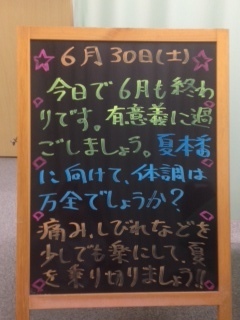 6月30日(土)
今日で6月も終わ
りです。有意義に過
ごしましょう。夏本番
に向けて、体調は
万全でしょうか?
痛み、しびれなどを
少しでも楽にして、夏
を乗り切りましょう!!